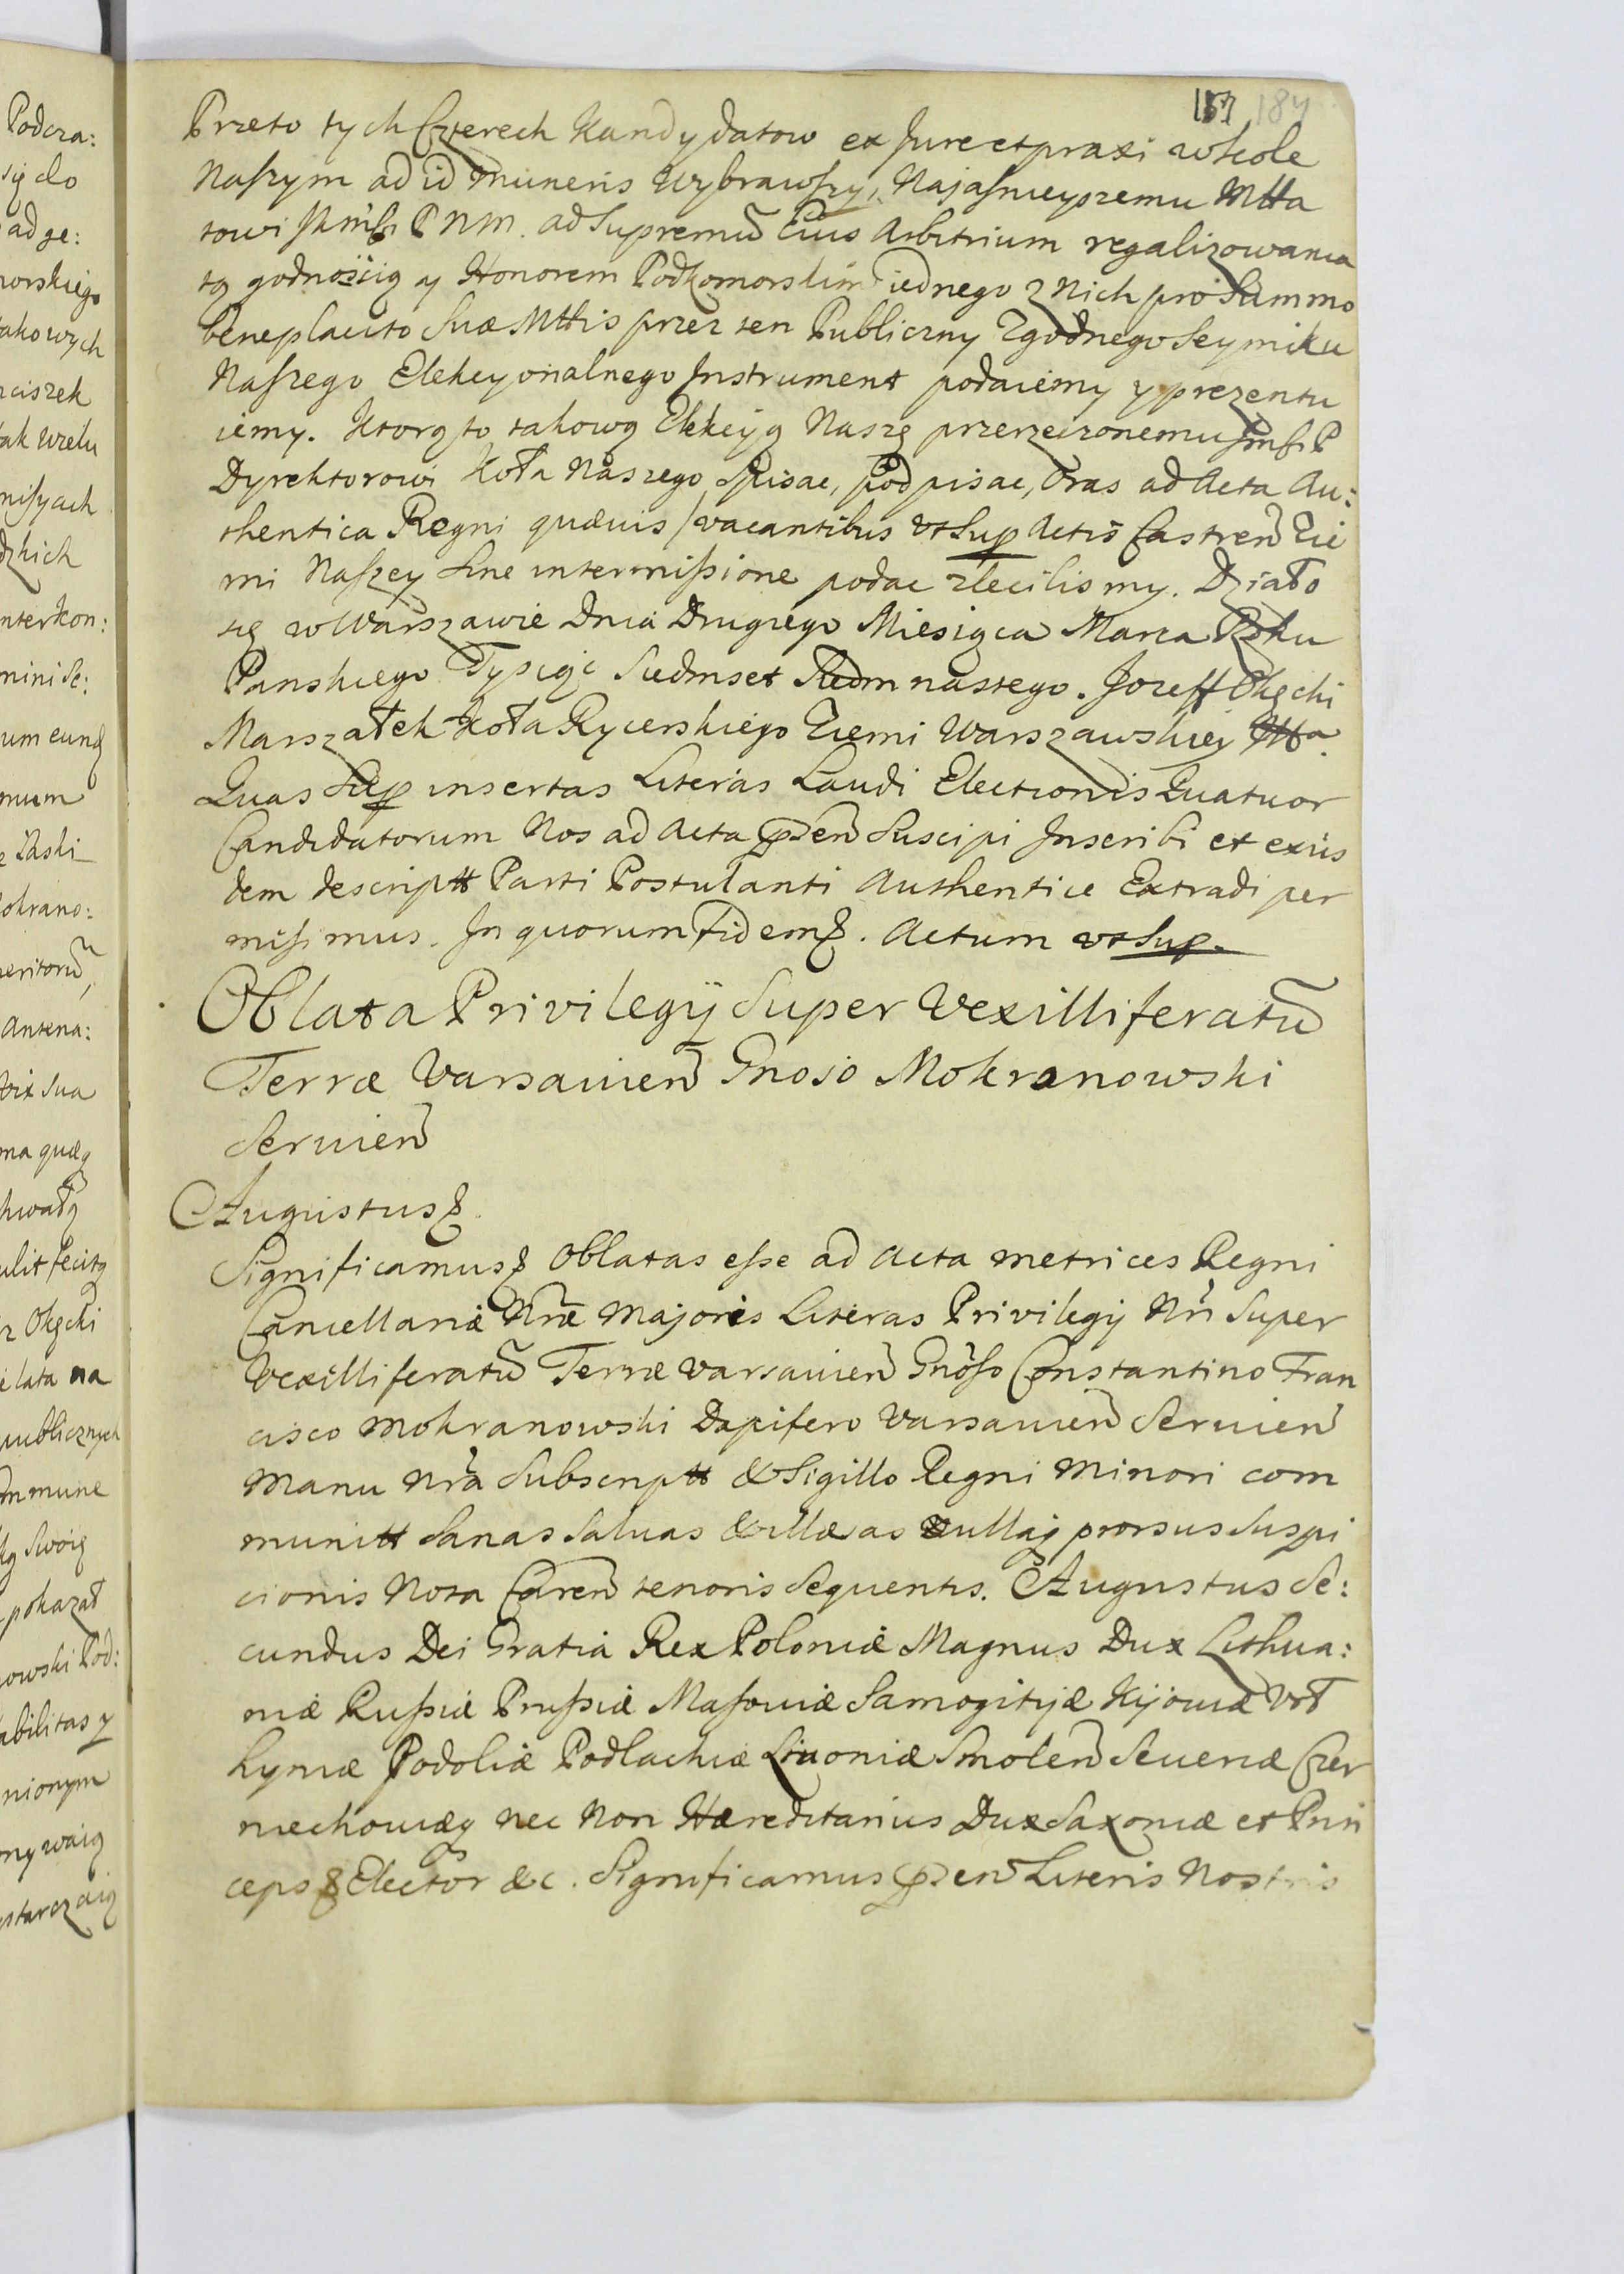 157 184
Przeto tych Czterech Kandydatow ex Jure et praxi w kole
Naszym ad id muneris wybrawszy, Najaśnieyszemu Mtta
towi JKmśi P N M. ad Supremũ Eius Arbitrium regalizowania
tą godnością y Honorem Podkomorskim iednego z Nich pro Summo
beneplacito Suæ Mttis przez ten Publiczny Zgodnego Seymiku
Naszego Elekcyonalnego Instrument podaiemy y prezentu
iemy. Ktorą to takową Elekcyą Naszę przerzeczonemu Jmśi P
Dyrektorowi Koła Naszego spisac, podpisac, Oras ad Acta Au:
thentica Regni quævis / vacantibus vt Sup Actis Castreñ Zie
mi Naszey Sine intermissione podac zlecilismy. Działo
się w Warszawie Dnia Drugiego Miesiąca Marca Roku
Panskiego Tysiąc Siedmset Siedmnastego. Jozeff Okęcki
Marszałek Koła Rycerskiego Ziemi Warszawskiey
Quas Sup insertas Literas Laudi Electionis Quatuor
Candidatorum Nos ad Acta pñ Suscipi Inscribi et exiis
dem descriptt Parti Postulanti Authentice Extradi per
misimus. In quorum fidem &. Actum vt Sup.
Oblata Privilegij Super Vexilliferatũ
Terræ Varsavieñ Gnoso Mokranowski
Servieñ
Augustus &.
Significamus & Oblatas esse ad Acta Metrices Regni
Cancellariæ Nræ Majoris Literas Privilegij Nri Super
Vexilliferatũ Terræ Varsavieñ Gnoso Constantino Fran
cisco Mokranowski Dapifero Varsavieñ Servieñ
Manu Nra Subscriptt & Sigillo Regni Minori com
munitt Sanas Salvas & illæas nullaq prorsus Suspi
cionis Nota Careñ tenoris Sequentis. Augustus Se:
cundus Dei Gratia Rex Poloniæ Magnus Dux Lithua:
niæ Russiæ Prussiæ Masoviæ Samogitijæ Kijoviæ Vol
hyniæ Podoliæ Podlachiæ Livoniæ Smoleñ Severiæ Czer
niechoviæq nec Non Hæreditarius Dux Saxoniæ et Prin
ceps & Elector &c. Significamus pñ Literis Nostris